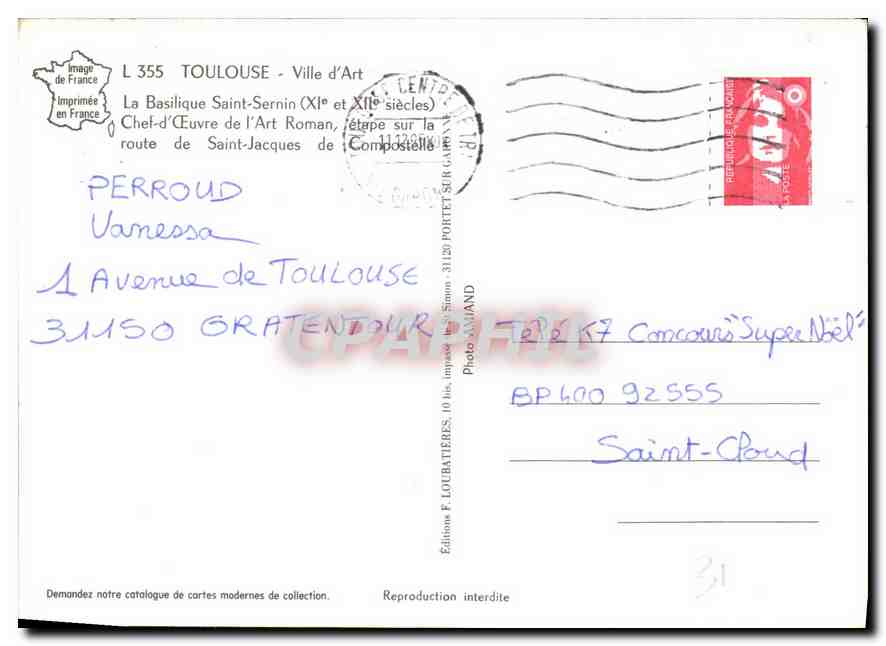 Image
de France
Imprimée
en France
L 355 TOULOUSE - Ville d'Art
La Basilique Saint-Sernin (XIe et XIIe siècles)
Chef-d'Œuvre de l'Art Roman, étape sur la
route de Saint-Jacques de Compostelle
PERROUD
Vanessa
1 Avenue de TOULOUSE
31150 GRATENTOUR
CPAPHIL
Editions F. LOUBATIÈRES, 10 bis, impasse de St Simon - 31120 PORTET SUR GARONNE
Photo JAMIAND
CENTRE DE TRI
REPUBLIQUE FRANÇAISE
LA POSTE
Télé K7 Concours "Super Noël"
BP 400 92555
Saint-Cloud
31
Demandez notre catalogue de cartes modernes de collection.
Reproduction interdite